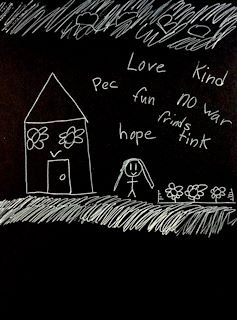 Love
Kind
Pec
fun
no war
frinds
hope
tink